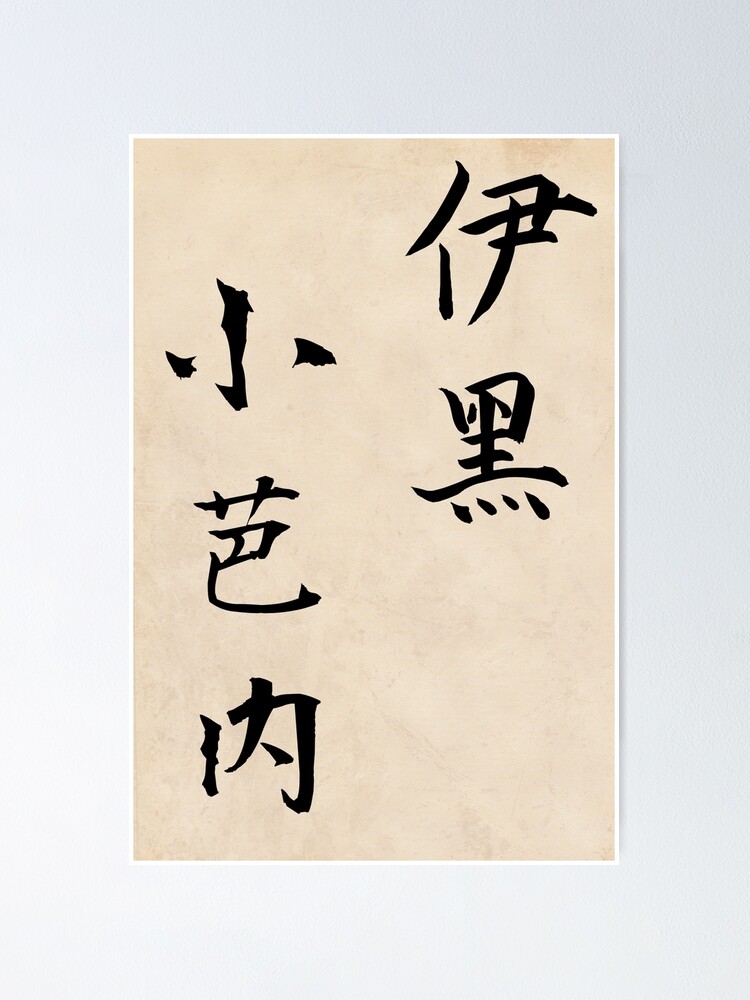 伊黑
小芭内